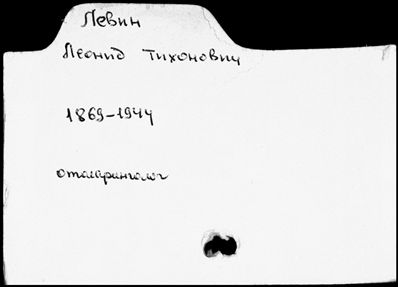 Левин
Леонид Тихонович
1869-1944
отоларинголог